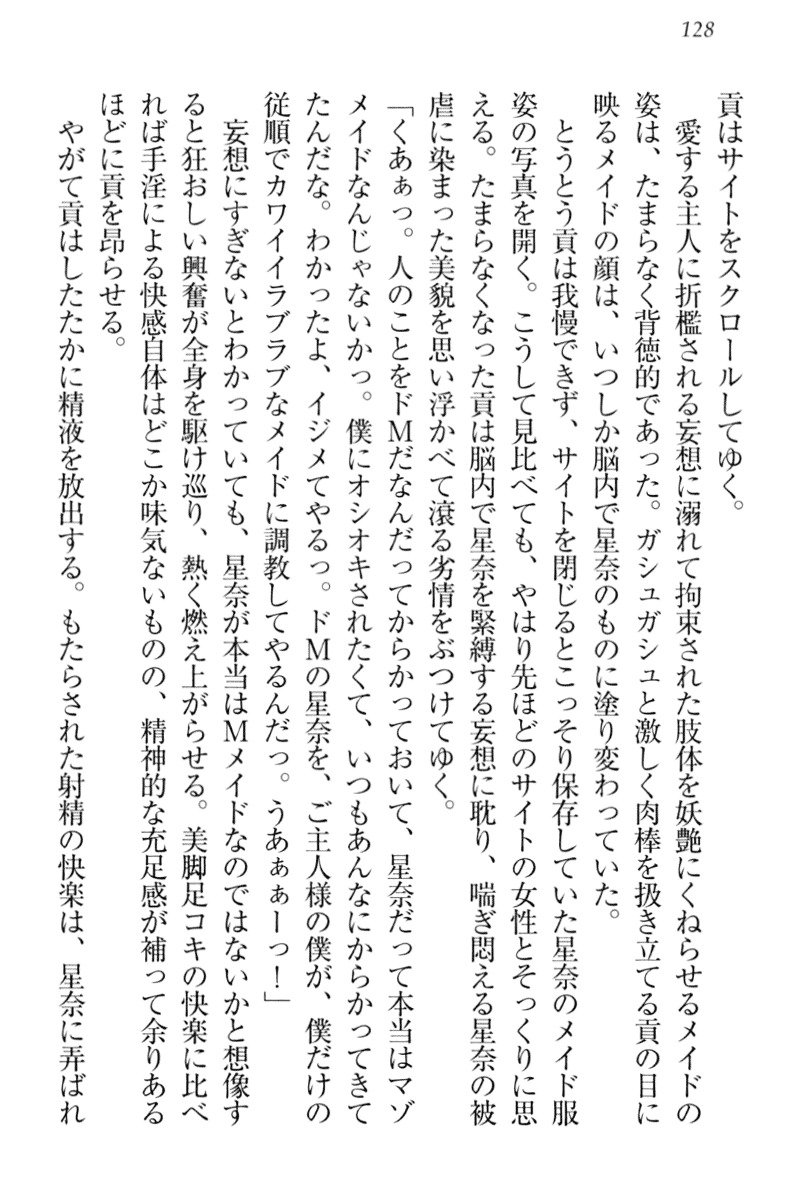 128
貢はサイトをスクロールしてゆく。
　愛する主人に折檻される妄想に溺れて拘束された肢体を妖艶にくねらせるメイドの
姿は、たまらなく背徳的であった。ガシュガシュと激しく肉棒を扱き立てる貢の目に
映るメイドの顔は、いつしか脳内で星奈のものに塗り変わっていた。
　とうとう貢は我慢できず、サイトを閉じるとこっそり保存していた星奈のメイド服
姿の写真を開く。こうして見比べても、やはり先ほどのサイトの女性とそっくりに思
える。たまらなくなった貢は脳内で星奈を緊縛する妄想に耽り、喘ぎ悶える星奈の被
虐に染まった美貌を思い浮かべて滾る劣情をぶつけてゆく。
「くあぁっ。人のことをドＭだなんだってからかっておいて、星奈だって本当はマゾ
メイドなんじゃないかっ。僕にオシオキされたくて、いつもあんなにからかってきて
たんだな。わかったよ、イジメてやるっ。ドＭの星奈を、ご主人様の僕が、僕だけの
従順でカワイイラブラブなメイドに調教してやるんだっ。うあぁぁーっ！」
　妄想にすぎないとわかっていても、星奈が本当はＭメイドなのではないかと想像す
ると狂おしい興奮が全身を駆け巡り、熱く燃え上がらせる。美脚足コキの快楽に比べ
れば手淫による快感自体はどこか味気ないものの、精神的な充足感が補って余りある
ほどに貢を昂らせる。
　やがて貢はしたたかに精液を放出する。もたらされた射精の快楽は、星奈に弄ばれ